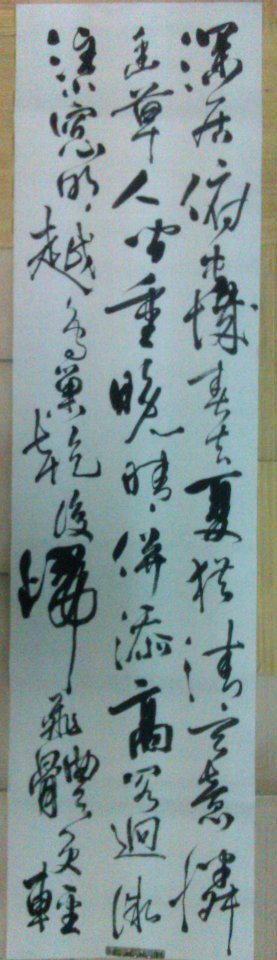 深居俯夹城春去夏犹清天意憐
幽草人间重晚晴併添高阁迥微
注窗明越鸟巢乾後歸飛體更轻